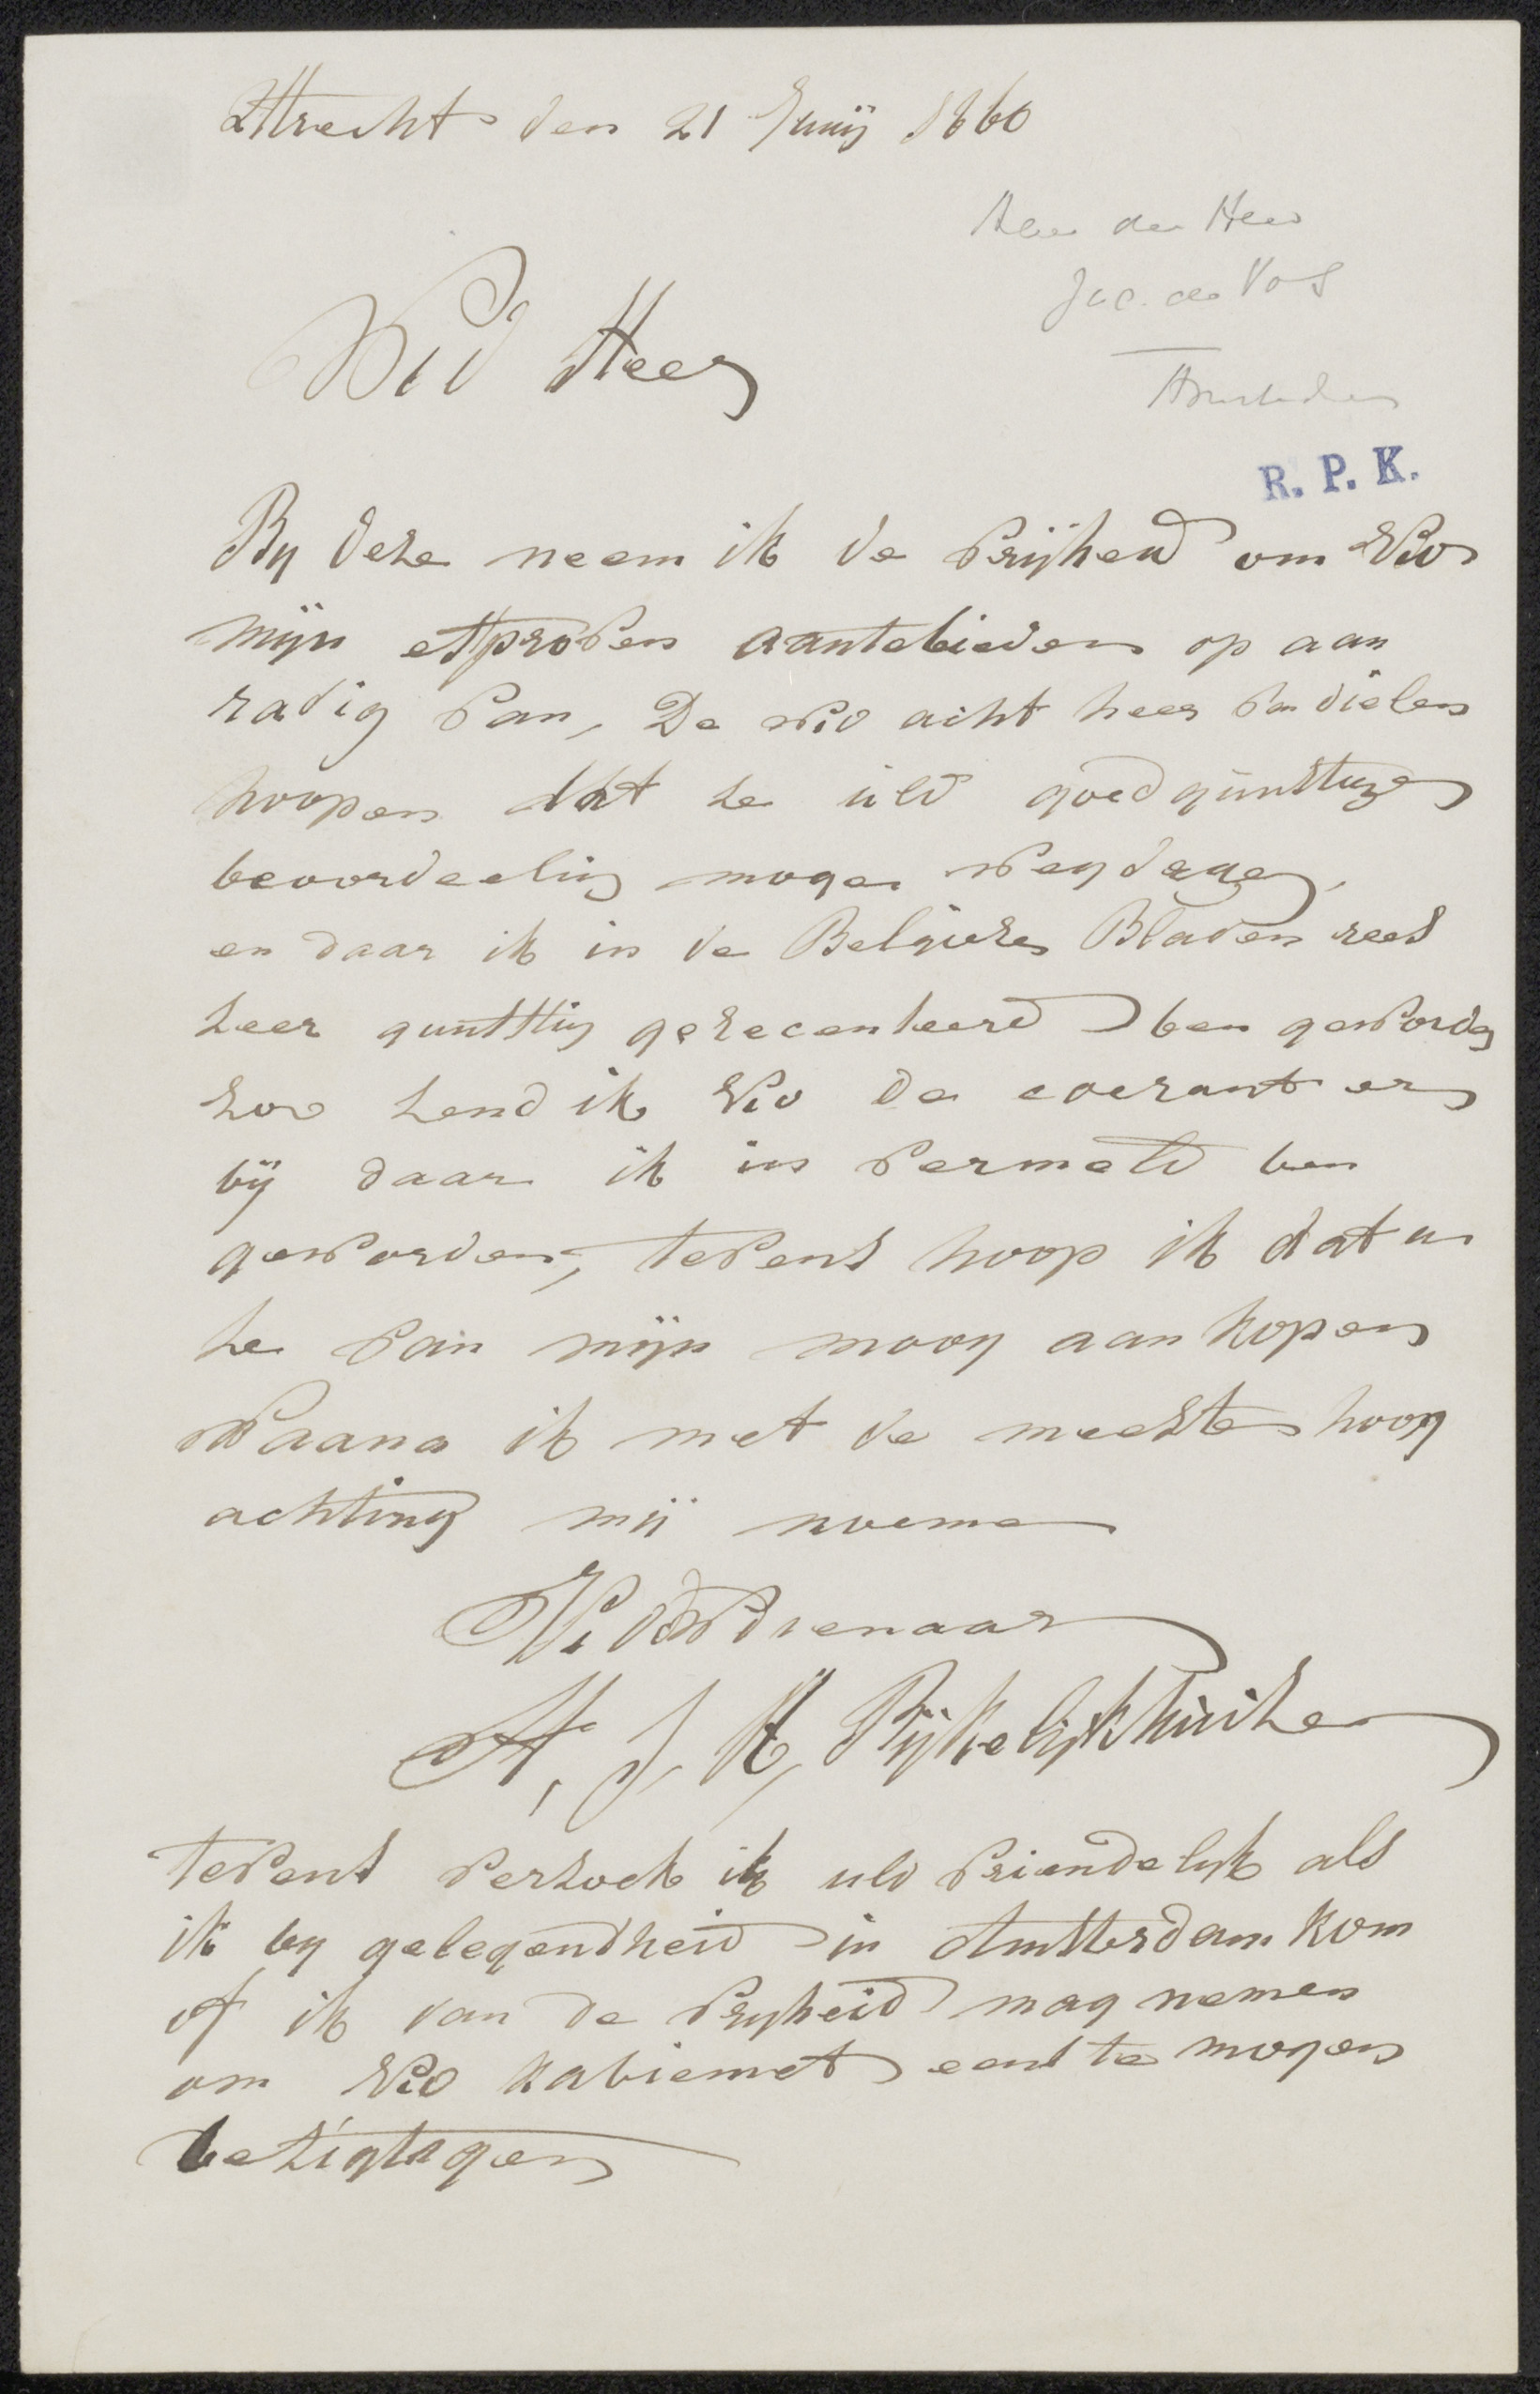 Uttrecht den 21 Junij 1860
Aan den Heer
Jac. de Vos
WED Heer
Amsterdam
R. P. K.
By deze neem ik de vrijheid om UED
mijn etsproven aantebieden op aan
radig van, De WED acht heer van dielen
hoopen dat ze UED goedgunstige
bevoordeeling mogen wegdragen,
en daar ik in de Belgieze Bladen reed
zeer gunstig gerecenseerd ben geworden
zoo zend ik UED de coerant er
bij daar ik in vermeld ben
geworden, tevens hoop ik dat u
ze van mijn moog aankopen
Waarna ik met de meeste hoog
achting mij noeme
UEDWDienaar
A, J, H, Rijkelijkhuize
tevens verzoek ik UED vriendelijk als
ik by gelegendheid in Amsterdam kom
of ik dan de vryheid mag nemen
om UED kabienet eens te mogen
bezigtegen